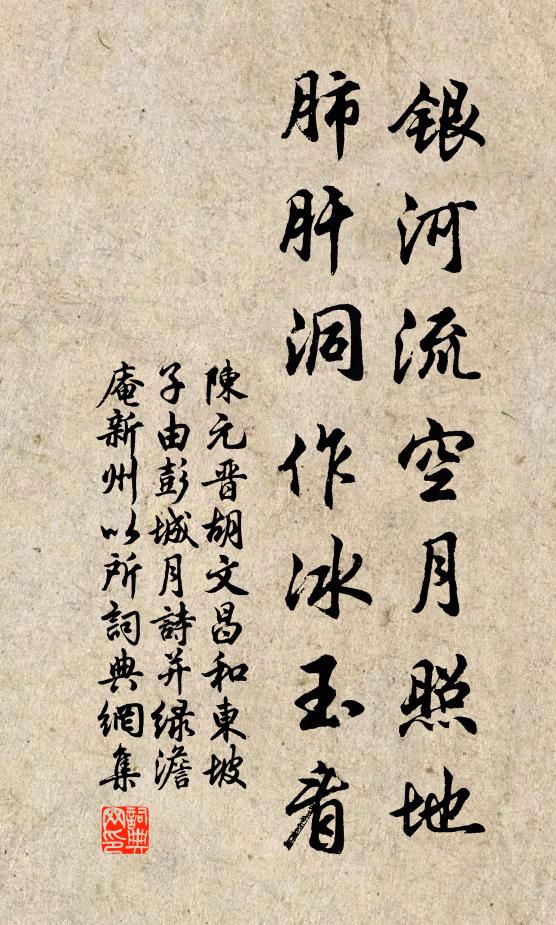 銀河流空月照地
肺肝洞作冰玉看
陳元晋胡文昌和東坡
子由彭城月詩并緑澹
庵新州以所詞典網集
詞典
网印